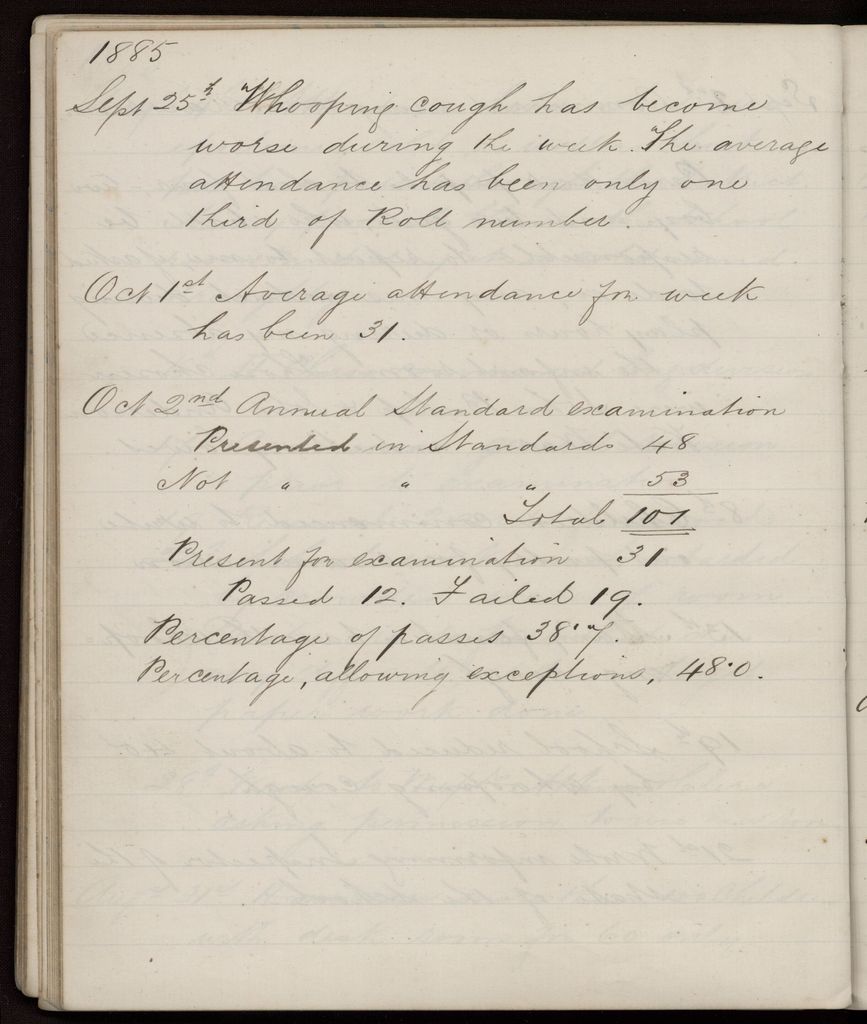 1885
Sept 25th Whooping cough has become
worse during the week. The average
attendance has been only one
third of Roll number.
Oct 1st Average attendance for week
has been 31.
Oct 2nd Annual Standard examination
Presented in Standards 48
Not " " " 53
Total 101
Present for examination 31
Passed 12. Failed 19.
Percentage of passes 38·7.
Percentage, allowing exceptions, 48·0.